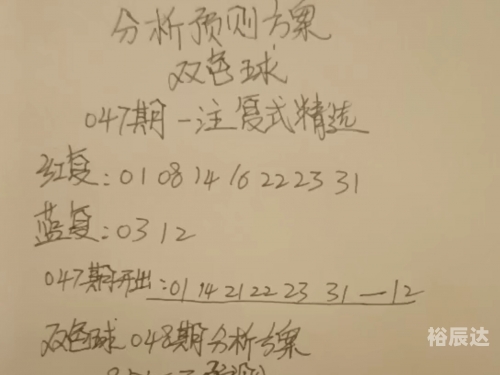 分析预测方案
双色球
047期一注复式精选
红复:01 08 14 16 22 23 31
蓝复:03 12
047期开出:01 14 21 22 23 31—12
双色球048期分析方案
裕辰达